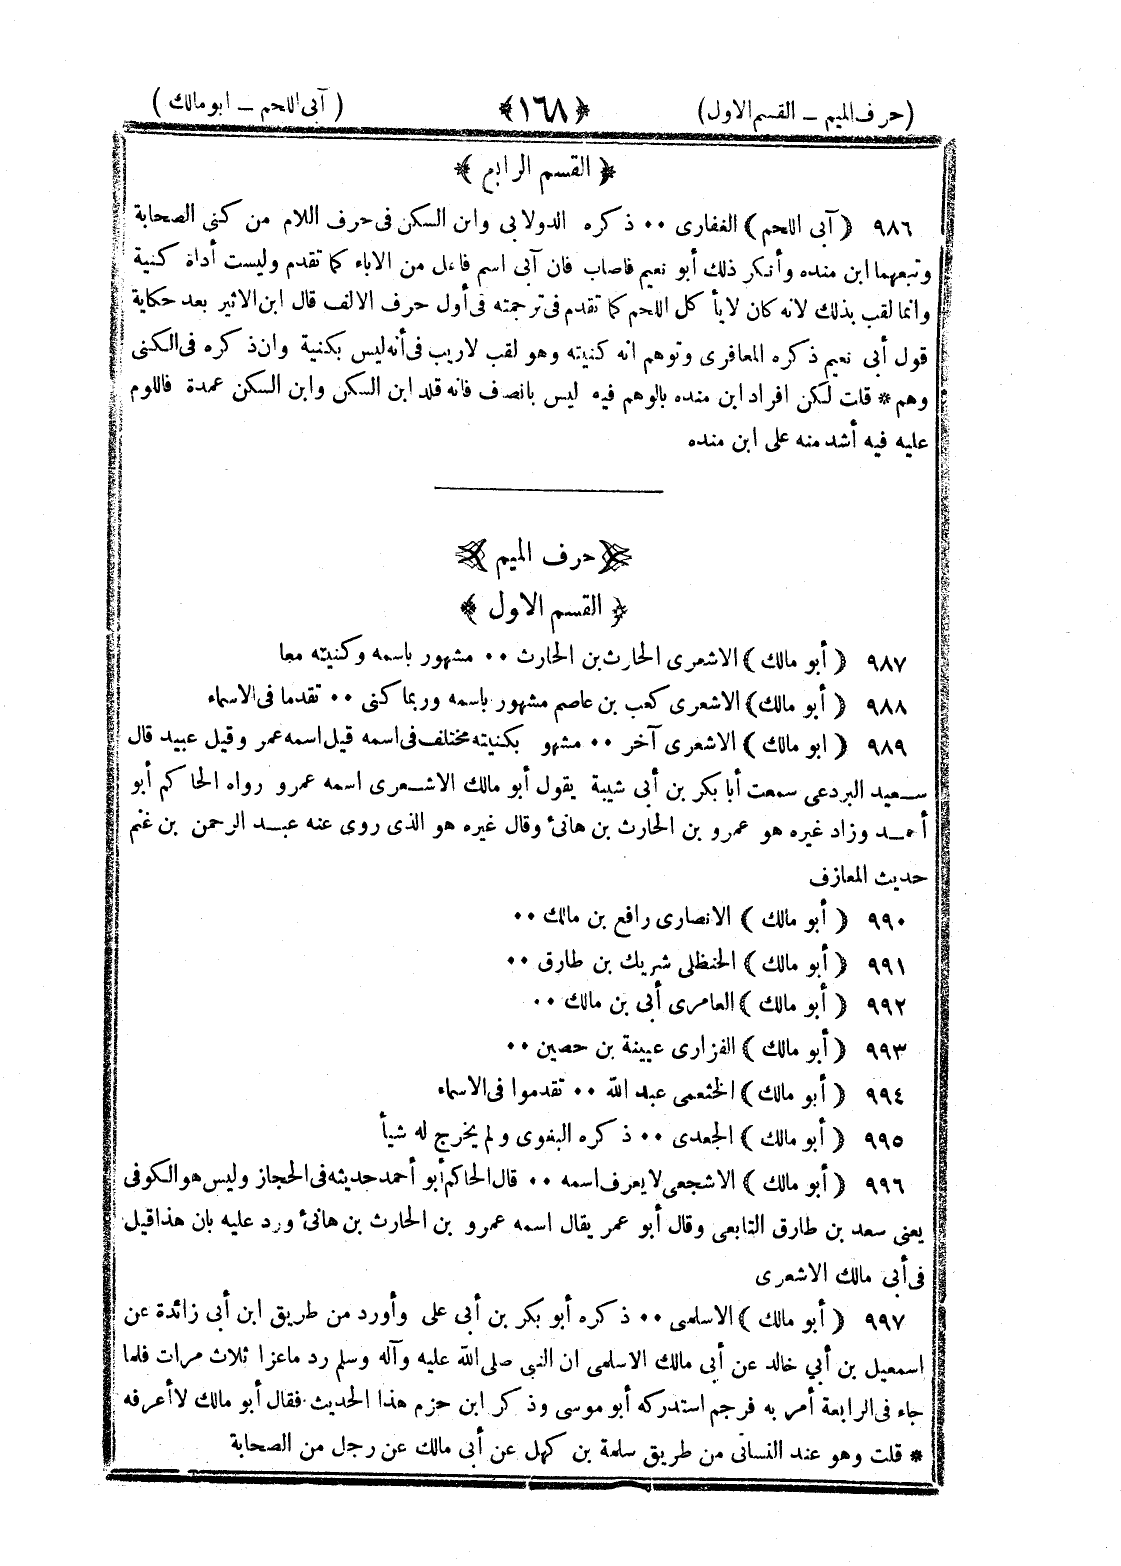 (حرف الميم – القسم الاول) ﴿١٦٨﴾ (آبى اللحم – ابو مالك)
﴿ القسم الرابع ﴾
٩٨٦ ( آبى اللحم ) الغفارى ٠٠ ذكره الدولابى وابن السكن فى حرف اللام من كنى الصحابة
وتبعهما ابن منده وأنكر ذلك أبو نعيم فاصاب فان آبى اسم فاعل من الاباء كما تقدم وليست أداة كنية
وانما لقب بذلك لانه كان لا يأكل اللحم كما تقدم فى ترجمته فى أول حرف الالف قال ابن الاثير بعد حكاية
قول أبى نعيم ذكره المعافرى وتوهم انه كنيته وهو لقب لاريب فى أنه ليس بكنية وان ذكره فى الكنى
وهم * قلت لكن افراد ابن منده بالوهم فيه ليس بانصف فانه قلد ابن السكن وابن السكن عمدة فاللوم
عليه فيه أشد منه على ابن منده
﴿ حرف الميم ﴾
﴿ القسم الاول ﴾
٩٨٧ ( أبو مالك ) الاشعرى الحارث بن الحارث ٠٠ مشهور باسمه وكنيته معا
٩٨٨ ( أبو مالك ) الاشعرى كعب بن عاصم مشهور باسمه وربما كنى ٠٠ تقدما فى الاسماء
٩٨٩ ( ابو مالك ) الاشعرى آخر ٠٠ مشهو بكنيته مختلف فى اسمه قيل اسمه عمر وقيل عبيد قال
سعيد البردعى سمعت أبا بكر بن أبى شيبة يقول أبو مالك الاشعرى اسمه عمرو رواه الحاكم أبو
أحمد وزاد غيره هو عمرو بن الحارث بن هانئ وقال غيره هو الذى روى عنه عبد الرحمن بن غنم
حديث المعازف
٩٩٠ ( أبو مالك ) الانصارى رافع بن مالك ٠٠
٩٩١ ( أبو مالك ) الحنظلى شريك بن طارق ٠٠
٩٩٢ ( أبو مالك ) العامرى أبى بن مالك ٠٠
٩٩٣ ( أبو مالك ) الفزارى عيينة بن حصين ٠٠
٩٩٤ ( أبو مالك ) الخثعمى عبد الله ٠٠ تقدموا فى الاسماء
٩٩٥ ( أبو مالك ) الجعدى ٠٠ ذكره البغوى ولم يخرج له شيأ
٩٩٦ ( أبو مالك ) الاشجعى لا يعرف اسمه ٠٠ قال الحاكم أبو أحمد حديثه فى الحجاز وليس هو الكوفى
يعنى سعد بن طارق التابعى وقال أبو عمر يقال اسمه عمرو بن الحارث بن هانئ ورد عليه بان هذا قيل
فى أبى مالك الاشعرى
٩٩٧ ( أبو مالك ) الاسلمى ٠٠ ذكره أبو بكر بن أبى على وأورد من طريق ابن أبى زائدة عن
اسمعيل بن أبي خالد عن أبى مالك الاسلمى ان النبى صلى الله عليه وآله وسلم رد ماعزا ثلاث مرات فلما
جاء فى الرابعة أمر به فرجم استدركه أبو موسى وذكر ابن حزم هذا الحديث فقال أبو مالك لا أعرفه
* قلت وهو عند النسائى من طريق سلمة بن كهل عن أبى مالك عن رجل من الصحابة